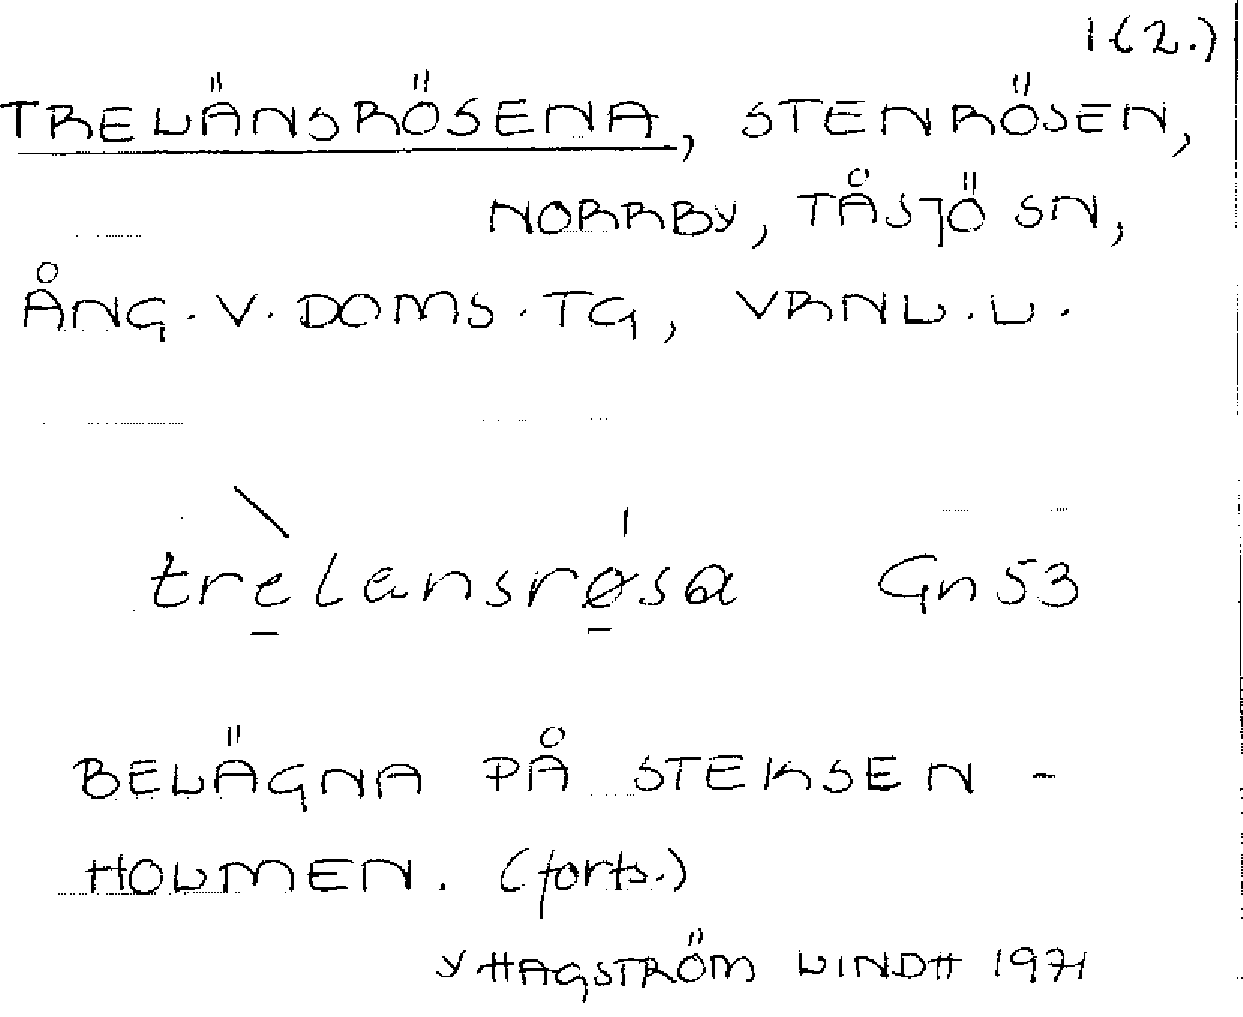 1(2.)
TRELÄNSRÖSENA, STENRÖSEN,
NORRBY, TÅSJÖ SN,
ÅNG. V. DOMS. TG, VRNL. L.
trèlansrø̱sa Gn 53
BELÄGNA PÅ STEKSEN-
HOLMEN. (forts.)
Y HAGSTRÖM LINDH 1971